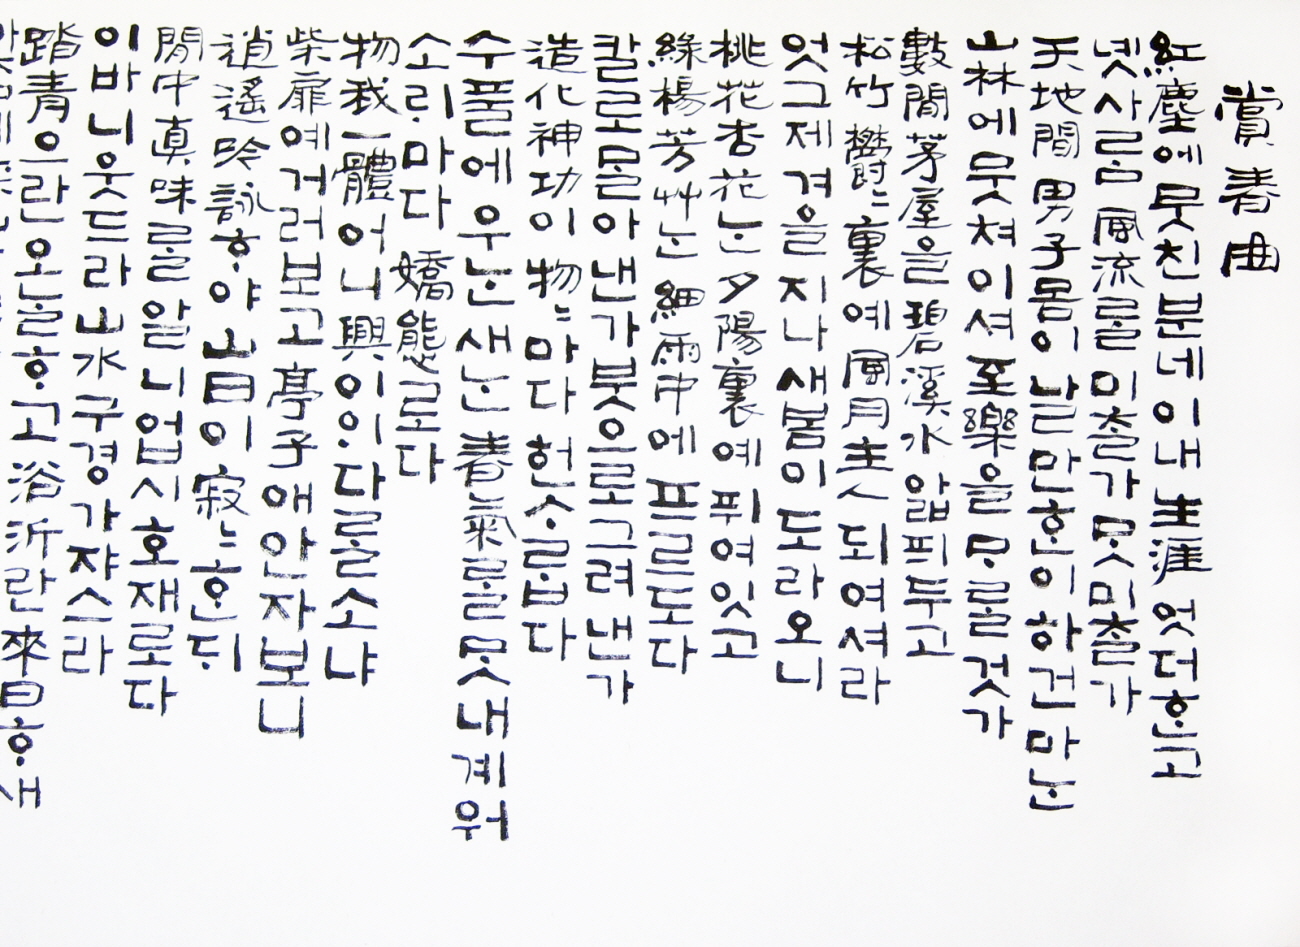 賞春曲
紅塵에뭇친분네이내生涯엇더ᄒᆞᆫ고
넷사ᄅᆞᆷ風流ᄅᆞᆯ미ᄎᆞᆯ가못미ᄎᆞᆯ가
天地間男子몸이날만ᄒᆞᆫ이하건마ᄂᆞᆫ
山林에뭇쳐이셔至樂을ᄆᆞᄅᆞᆯ것가
數間茅屋을碧溪水앏픠두고
松竹欝〻裏예風月主人되여셔라
엇그제겨을지나새봄이도라오니
桃花杏花ᄂᆞᆫ夕陽裏예퓌여잇고
綠楊芳艸ᄂᆞᆫ細雨中에프르도다
칼로ᄆᆞᆯ아낸가붓으로그려낸가
造化神功이物〻마다헌ᄉᆞ룹다
수풀에우ᄂᆞᆫ새ᄂᆞᆫ春氣ᄅᆞᆯᄆᆺ내계워
소리마다嬌態로다
物我一體어니興이이다ᄅᆞᆯ소냐
柴扉예거러보고亭子애안자보니
逍遙吟詠ᄒᆞ야山日이寂〻ᄒᆞᆫᄃᆡ
閒中眞味ᄅᆞᆯ알니업시호재로다
이바니웃드라山水구경가쟈스라
踏靑으란오ᄂᆞᆯᄒᆞ고浴沂란來日ᄒᆞ새